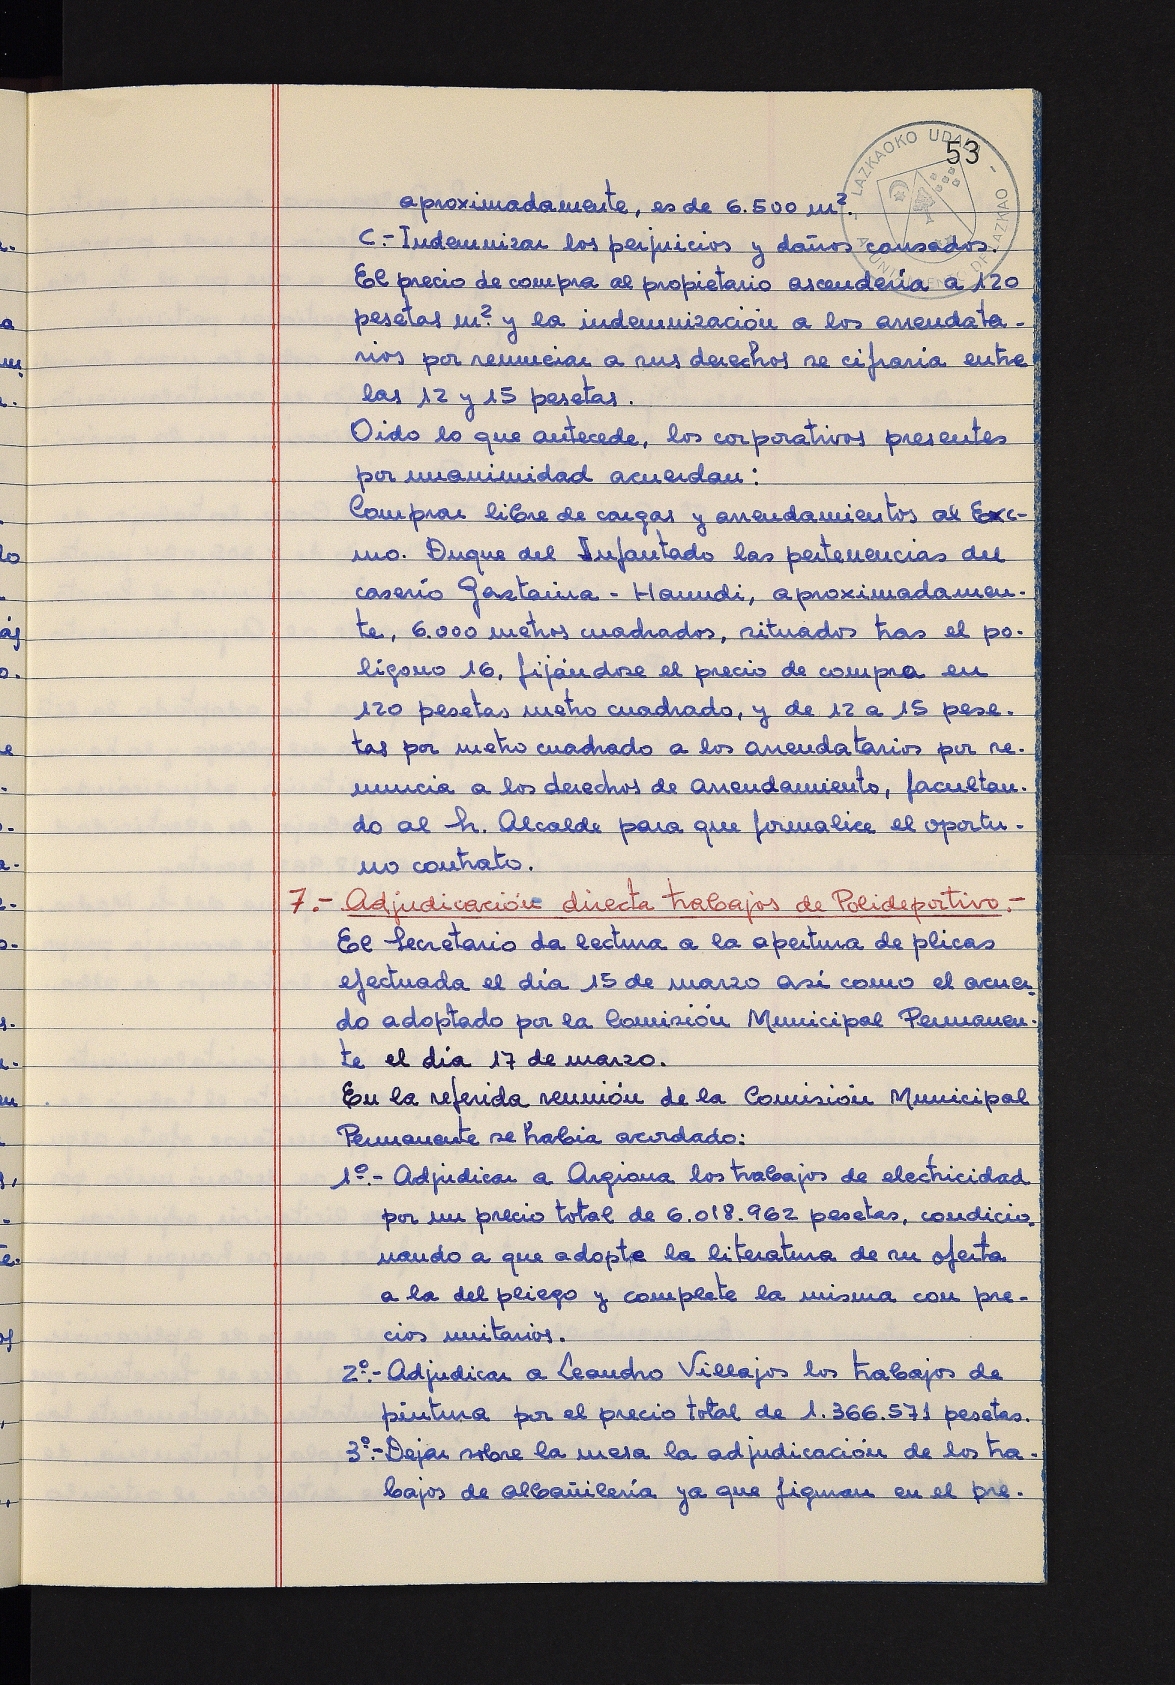 LAZKAOKO UDALA - AYUNTAMIENTO DE LAZKAO -
53
aproximadamente, es de 6.500 m².
C.- Indemnizar los perjuicios y daños causados.
El precio de compra al propietario ascendería a 120
pesetas m² y la indemnización a los arrendata-
rios por renunciar a sus derechos se cifraria entre
las 12 y 15 pesetas.
Oido lo que antecede, los corporativos presentes
por unanimidad acuerdan:
Comprar libre de cargas y arrendamientos al Exc-
mo. Duque del Infantado las pertenencias del
caserío Gaztaina - Haundi, aproximadamen-
te, 6.000 metros cuadrados, situados tras el po-
lígono 16, fijándose el precio de compra en
120 pesetas metro cuadrado, y de 12 a 15 pese-
tas por metro cuadrado a los arrendatarios por re-
nuncia a los derechos de arrendamiento, facultan-
do al Sr. Alcalde para que formalice el oportu-
no contrato.
7.- Adjudicación directa trabajos de Polideportivo.-
El Secretario da lectura a la apertura de plicas
efectuada el día 15 de marzo así como el acuer-
do adoptado por la Comisión Municipal Permanen-
te el día 17 de marzo.
En la referida reunión de la Comisión Municipal
Permanente se habia acordado:
1º.- Adjudicar a Argiona los trabajos de electricidad
por un precio total de 6.018.962 pesetas, condicio-
nando a que adopte la literatura de su oferta
a la del pliego y complete la misma con pre-
cios unitarios.
2º.- Adjudicar a Leandro Villajos los trabajos de
pintura por el precio total de 1.366.571 pesetas.
3º.- Dejar sobre la mesa la adjudicación de los tra-
bajos de albañilería ya que figuran en el pre-